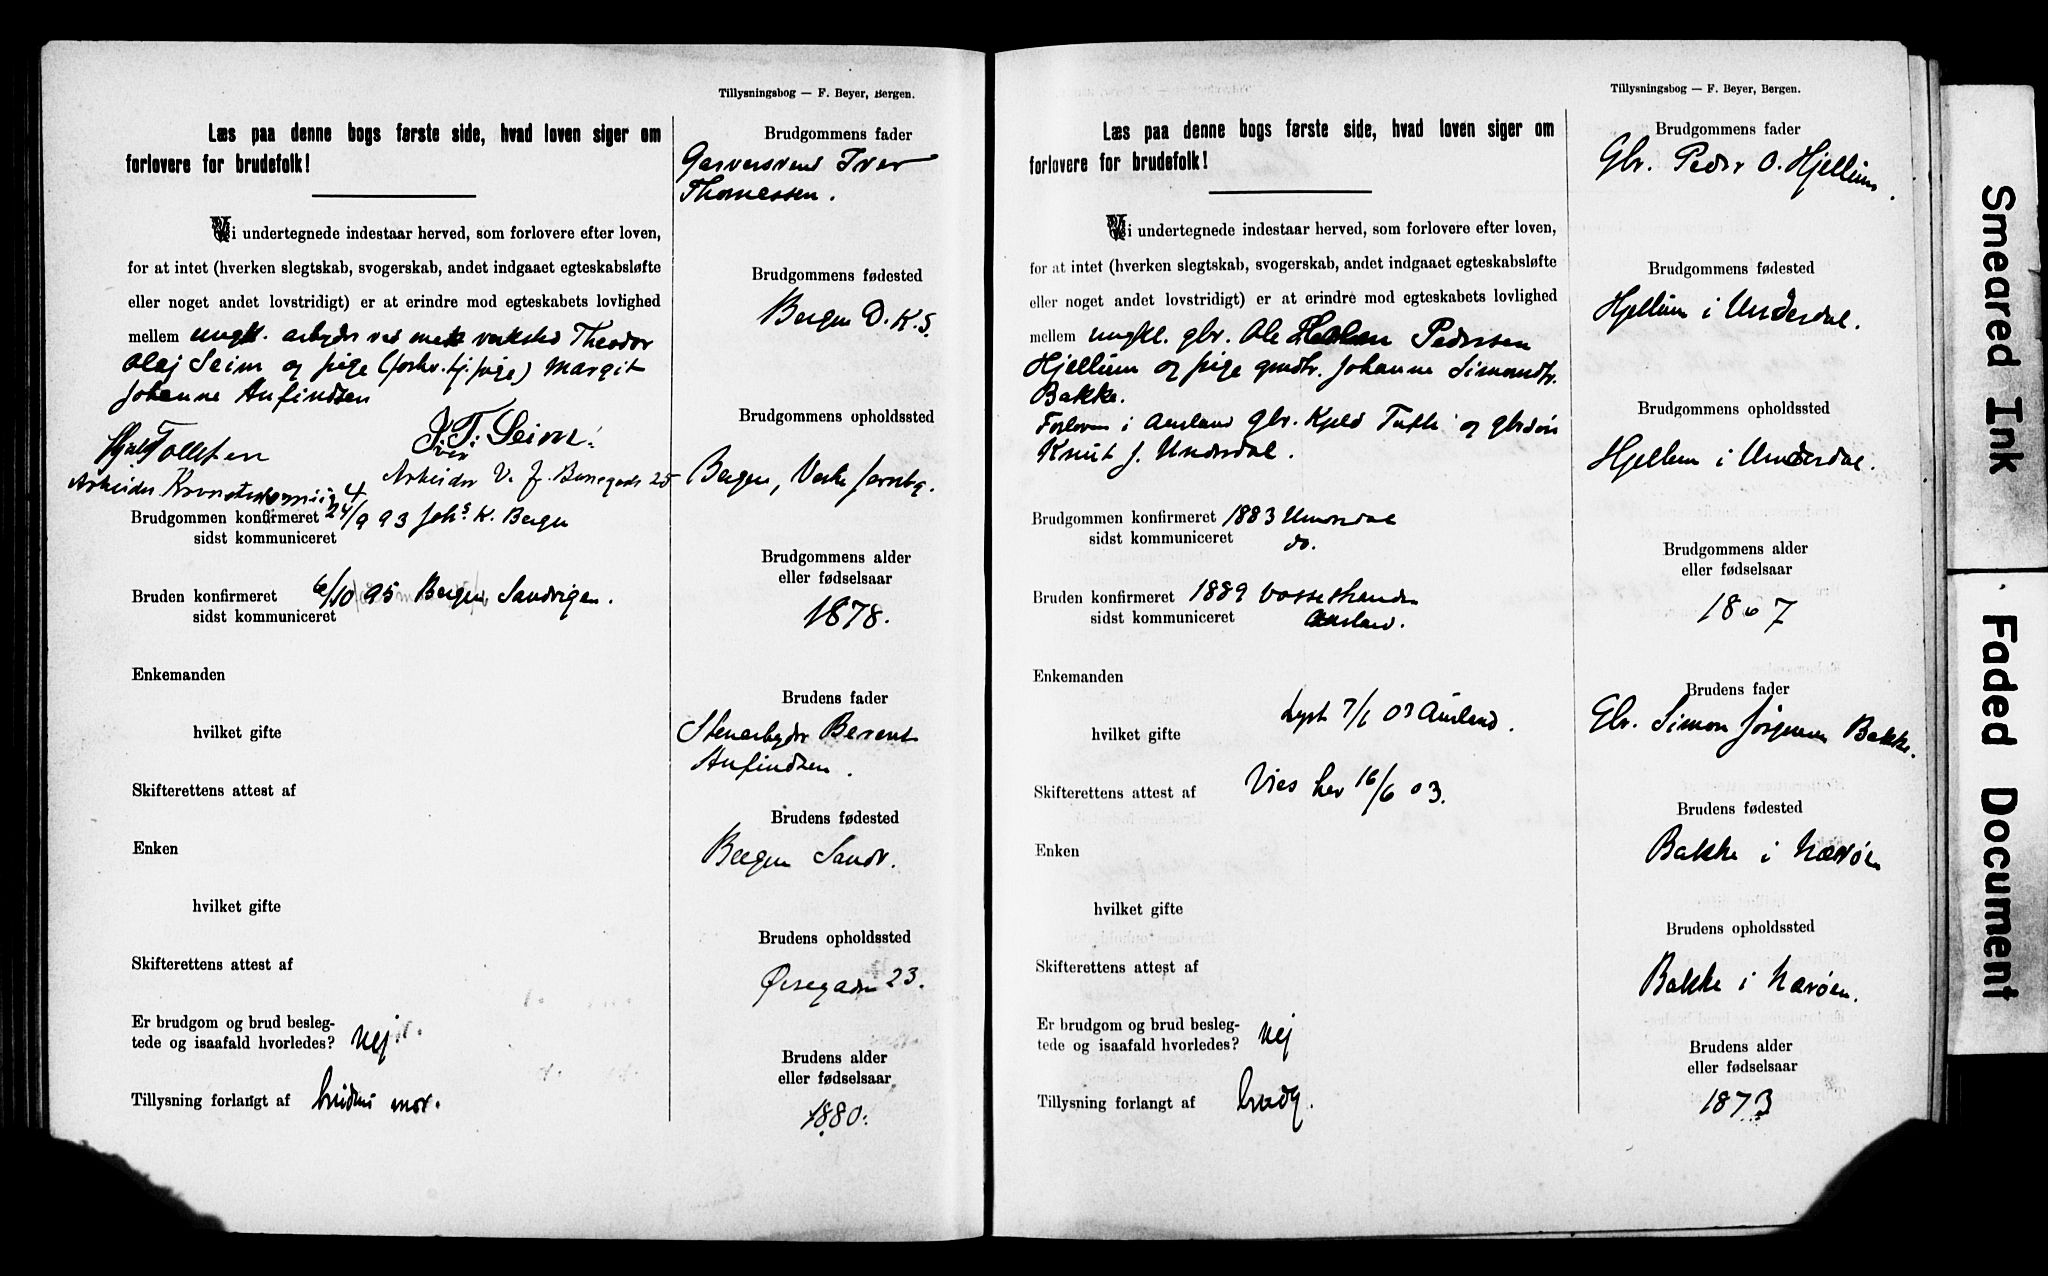 Tillysningsbog — F. Beyer, Bergen.
Læs paa denne bogs første side, hvad loven siger om
forlovere for brudefolk!
Vi undertegnede indestaar herved, som forlovere efter loven,
for at intet (hverken slegtskab, svogerskab, andet indgaaet egteskabsløfte
eller noget andet lovstridigt) er at erindre mod egteskabets lovlighed
mellem ungk. arbeyder ved mek verksted Theodor
Olaj Seim og pige (forhv. tj. pige) Margit
Johanne Anfindsen
Tollefsen
I. T. Seim.
Iver
Arbeider
Arbeider V. 25
Brudgommen konfirmeret 24/9 93 Johs K. Bergen
sidst kommuniceret
Bruden konfirmeret 6/10 95 Bergen Sandvigen.
sidst kommuniceret
Enkemanden
hvilket gifte
Skifterettens attest af
Enken
hvilket gifte
Skifterettens attest af
Er brudgom og brud besleg-
tede og isaafald hvorledes? Nej.
Tillysning forlangt af brudens mor.
Brudgommens fader
Garversvend Iver
Thomessen.
Brudgommens fødested
Bergen D. K. S.
Brudgommens opholdssted
Bergen,
Brudgommens alder
eller fødselsaar
1878.
Brudens fader
Stenarbyder Berent
Anfindsen.
Brudens fødested
Bergen Sandv.
Brudens opholdssted
Øvregaden 23.
Brudens alder
eller fødselsaar
1880.
Tillysningsbog — F. Beyer, Bergen.
Læs paa denne bogs første side, hvad loven siger om
forlovere for brudefolk!
Vi undertegnede indestaar herved, som forlovere efter loven,
for at intet (hverken slegtskab, svogerskab, andet indgaaet egteskabsløfte
eller noget andet lovstridigt) er at erindre mod egteskabets lovlighed
mellem ungkl. gbr. Ole Pedersen
Hjellum og pige gmdtr. Johanne Simonsdtr.
Bakke.
Forlovere i Aurland Gbr. Kjeld Tufte og gbrsøn
Knut J. Underdal.
Brudgommen konfirmeret 1883 Underdal
sidst kommuniceret do.
Bruden konfirmeret 1889 Vossestranden
sidst kommuniceret Aurland.
Enkemanden
Lyst 7/6 03 Aurland.
hvilket gifte
Skifterettens attest af Vies her 16/6 03.
Enken
hvilket gifte
Skifterettens attest af
Er brudgom og brud besleg-
tede og isaafald hvorledes? Nej
Tillysning forlangt af brudg.
Brudgommens fader
Gbr. Peder O. Hjellum.
Brudgommens fødested
Hjellum i Underdal.
Brudgommens opholdssted
Hjellum i Underdal.
Brudgommens alder
eller fødselsaar
1867
Brudens fader
Gbr. Simon Jørgensen Bakke.
Brudens fødested
Bakke i Nærøen
Brudens opholdssted
Bakke i Nærøen.
Brudens alder
eller fødselsaar
1873
Smeared Ink
Faded Document